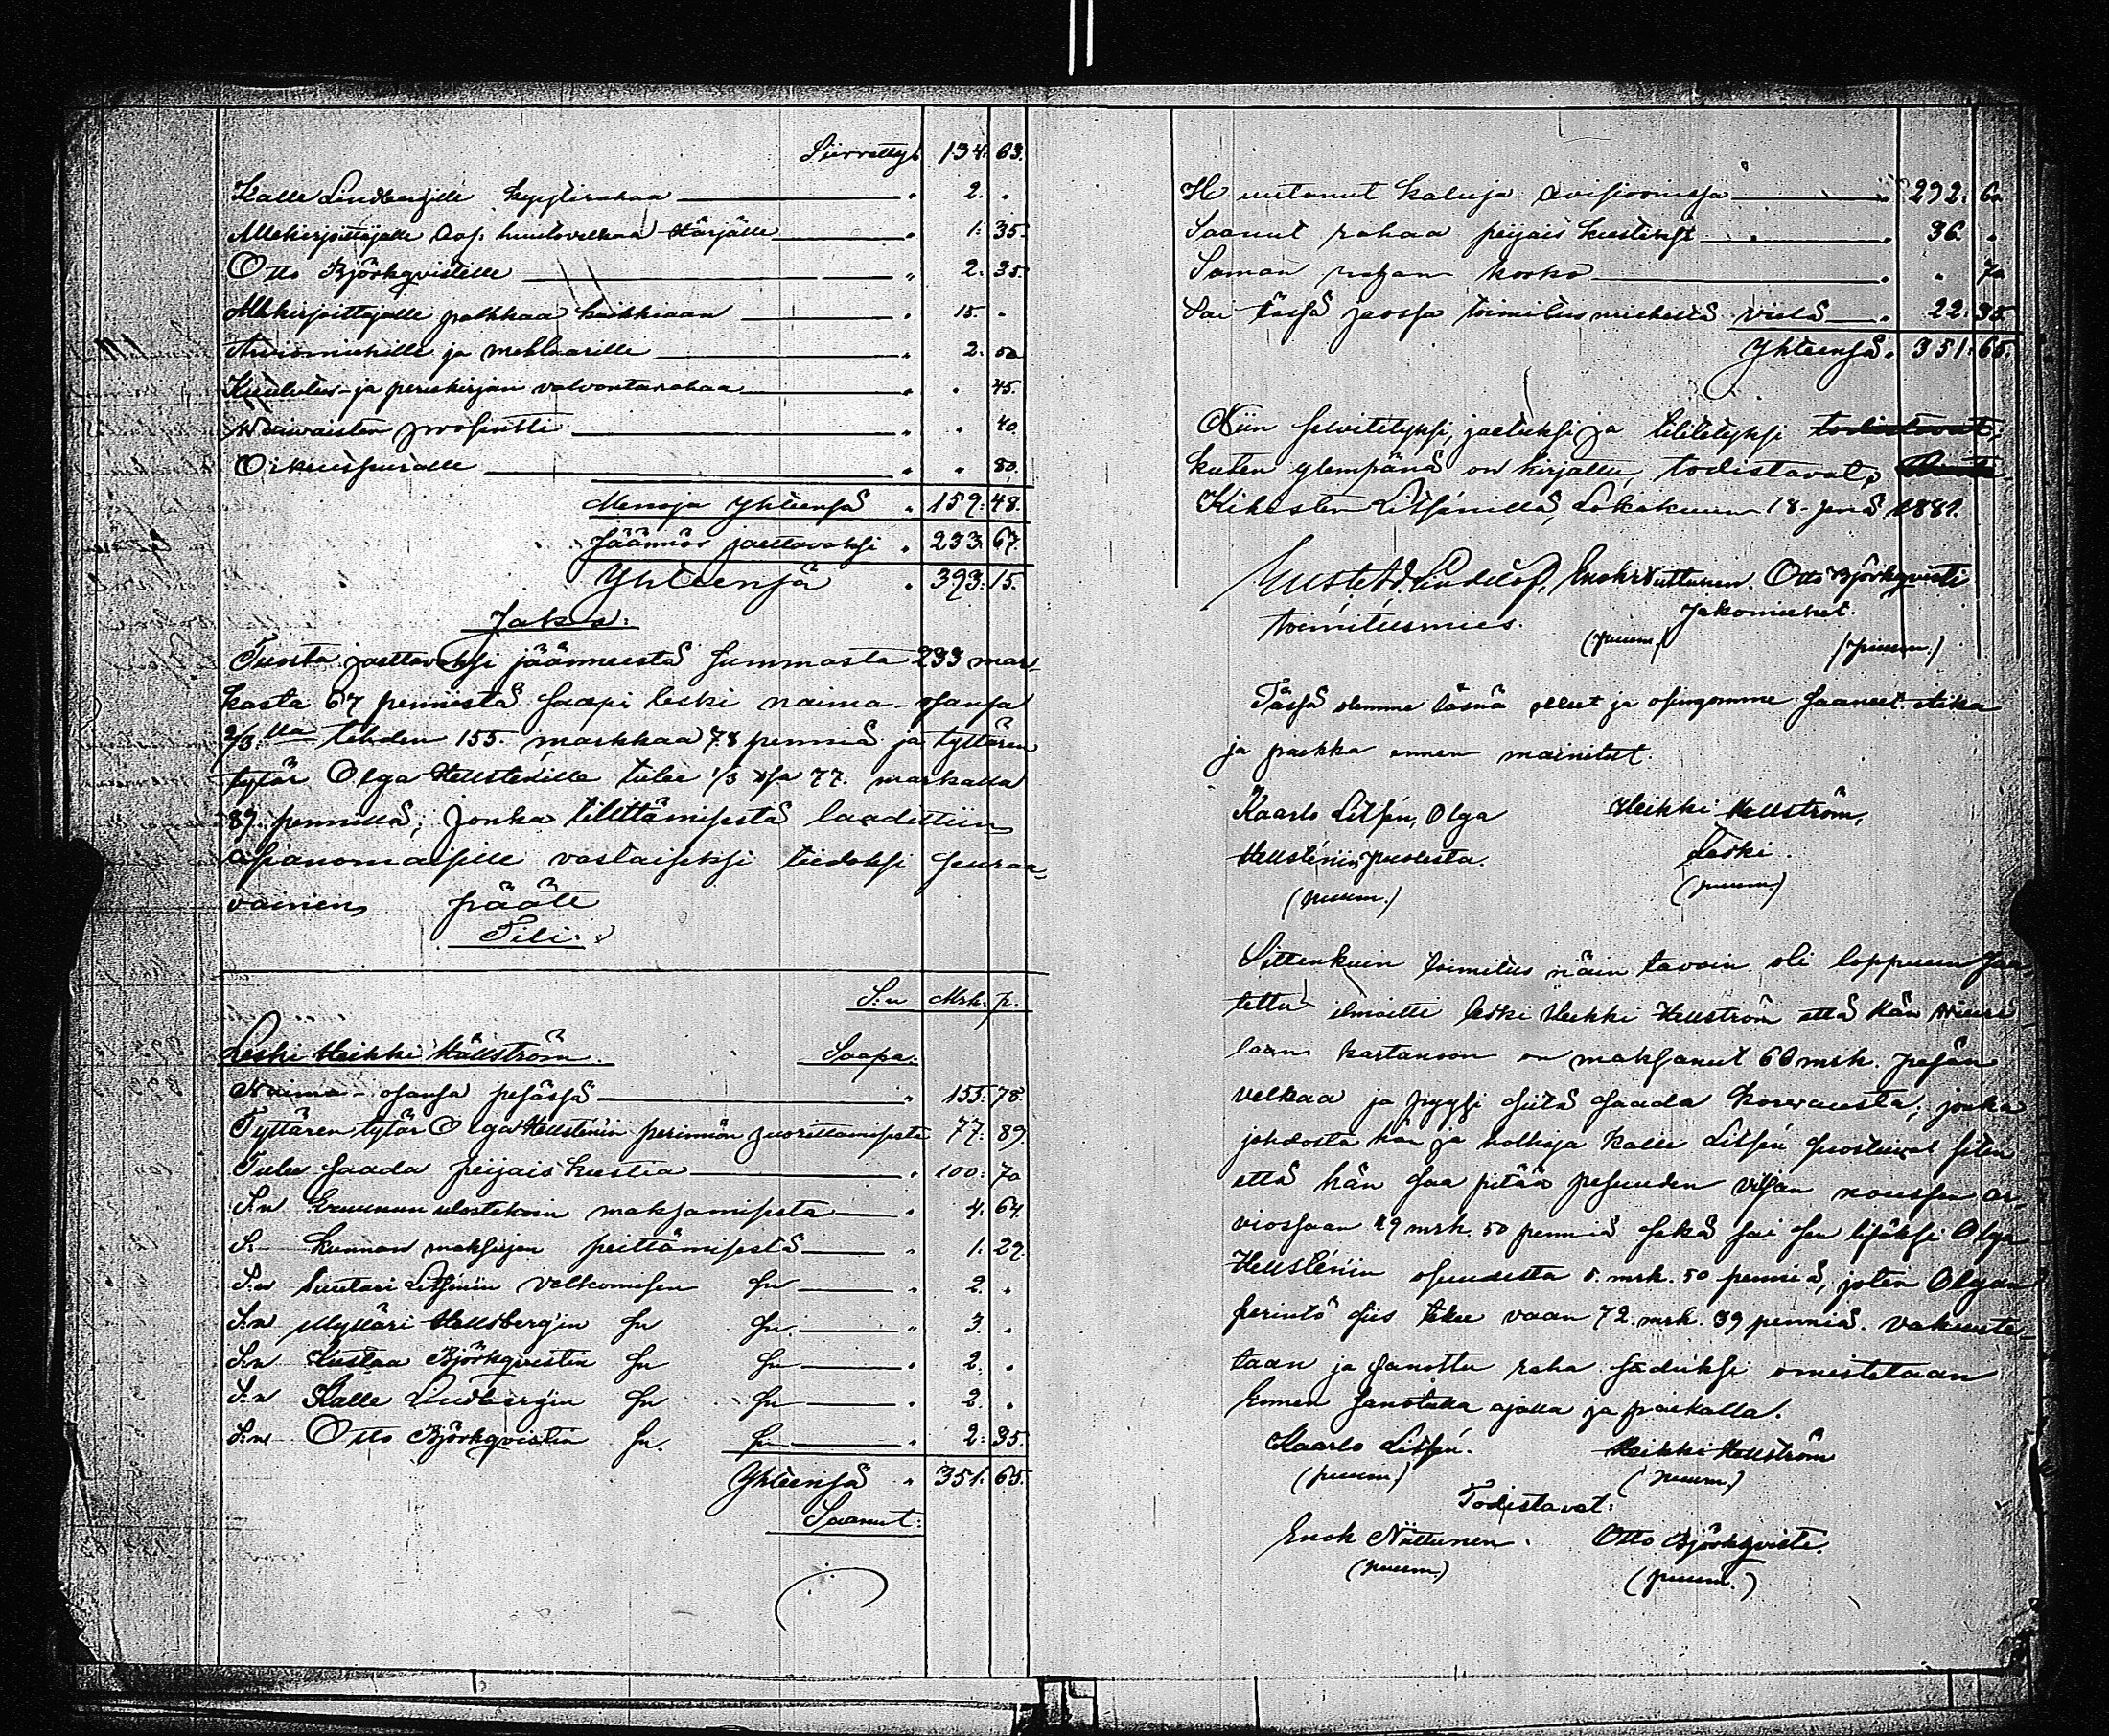 Siirrettyt 134. 63.
Kalle Lindbergille kyytirahaa " 2. "
Allekirjoittajalle huutovelkaa Härjälle " 1. 35.
Otto Björkqvistille " 2. 35.
Allekirjoittajalle palkkaa kaikkiaan " 15. "
Arviomiehille ja meklaarille " 2. 50
Kuulutus- ja perukirjan valvontarahaa " " 45.
Waivaisten prosentti " " 40.
" " 80.
Menoja Yhteensä " 159. 48.
Jäännös jaettavaksi " 233. 67.
Yhteensä " 393. 15.
Jako:
Tuosta jaettavaksi jäänneestä summasta 233 mar-
kasta 67 pennistä saapi leski naima-osansa
2/3:lla tehden 155. markkaa 78 penniä ja tyttären
tytär Olga Hellstenille tulee 1/3 osa 77. markalla
89. pennillä; jonka tilittämisestä laadittiin
asianomaisille vastaiseksi tiedoksi seuraa-
vainen päätös
Tili:
S:n Mrk. p.
Leski Heikki Hällström. Saapa:
Naima-osansa pesässä " 155. 78.
Tyttären tytär Olga Hellstenin perinnön suorittamisesta 77. 89.
Tulee saada peijais kustia " 100. 70
S:n Kruunun ulostekoin maksamisesta " 4. 64.
S:n Kunnan maksujen peittämisestä " 1. 29.
S:n Suutari Litsénin velkomisen sn " 2. "
S:n Mylläri Hellsbergin sn sn " 3. "
S:n Kustaa Björkqvistin sn sn " 2. "
S:n Kalle Lindbergin sn sn " 2. "
S:n Otto Björkqvistin sn. sn " 2. 35.
Yhteensä " 351. 65.
Saanut:
Huutanut kaluja " 292. 60
Saanut rahaa peijais kustinkst " 36. "
Saman rahan korko " " 70
Sai tässä jaossa toimitusmieheltä vielä " 22. 35.
Yhteensä " 351. 65.
Niin selvitetyksi, jaetuksi ja tilitetyksi todistavat,
kuten ylempänä on kirjattu, todistavat,
Litsénillä, Lokakuun 18. pnä 1881.
Kustet Ad. Lindelöf, Enok Niittunen. Otto Björkqvisti
toimitusmies. Jakomiehet.
(puum.) (puum.)
Tässä olemme läsnä olleet ja osingomme saaneet. Aika
ja paikka ennen mainitut.
Kaarlo Litsén, Olga Heikki Hellström,
Hellsténin puolesta. Leski.
(puum.) (puum.)
Sittenkuin toimitus näin tavoin oli loppuun saa-
tettu ilmoitti leski Heikki Hellström että hän
laan kartanoon on maksanut 60 mrk. pesän
velkaa ja pyysi siitä saada korvausta; jonka
johdosta hän ja holhoja Kalle Litsén suostuivat siten
että hän saa pitää pesuuden viljan nousseen ar-
viossaan 49 mrk. 50 penniä sekä sai sen lisäksi Olga
Hellsténin osuudesta 5. mrk. 50 penniä, joten Olgan
perintö siis tekee vaan 72. mrk. 39 penniä. Vakuute-
taan ja sanottu raha saaduksi omistetaan
Ennen sanotulla ajalla ja paikalla.
Kaarlo Litsén. Heikki Hellström
(puum.) (puum.)
Todistavat:
Enok Niittunen. Otto Björkqvisti.
(puum.) (puum.)